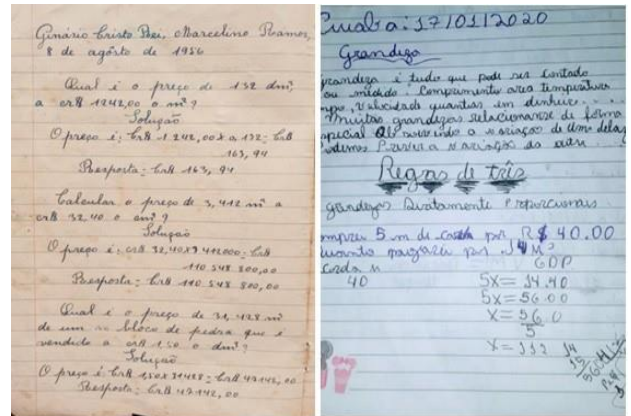 Ginásio Cristo Rei, Marcelino Ramos,
8 de agôsto de 1956
Qual é o preço de 132 dm³,
a cr$ 1242,00 o m³?
Solução
O preço é: cr$ 1.242,00 x a 132 = cr$
163,94
Resposta: Cr$ 163,94
Calcular o preço de 3,412 m³ a
cr$ 32,40 o cm³?
Solução
O preço é: cr$ 32,40 x 3 412000 = Cr$
110 548 800,00
Resposta: Cr$ 110 548 800,00
Qual é o preço de 31,428 m³
de um bloco de pedra que é
vendido a cr$ 1,50 o dm³?
Solução
O preço é: Cr$ 1,50 x 31428 = Cr$ 47142,00
Resposta: Cr$ 47142,00
Cuiaba: 17/01/2020
Grandeza
grandeza é tudo que pode ser contado
ou medido. Comprimento area temperatura
mpo, Velocidade quantias em dinheiro...
Muitas grandezas relacionarse de forma
special a variaçao de uma delas
podemos a variaçao da outra.
Regras de três
grandezas Diretamente Proporcionais
mprei 5 m de corda por R$ 40.00
uanto pagarei por 14 M?
Corda M GDP
40 5X = 14.40
5X = 56.00
X = 56.0
5
X = 112